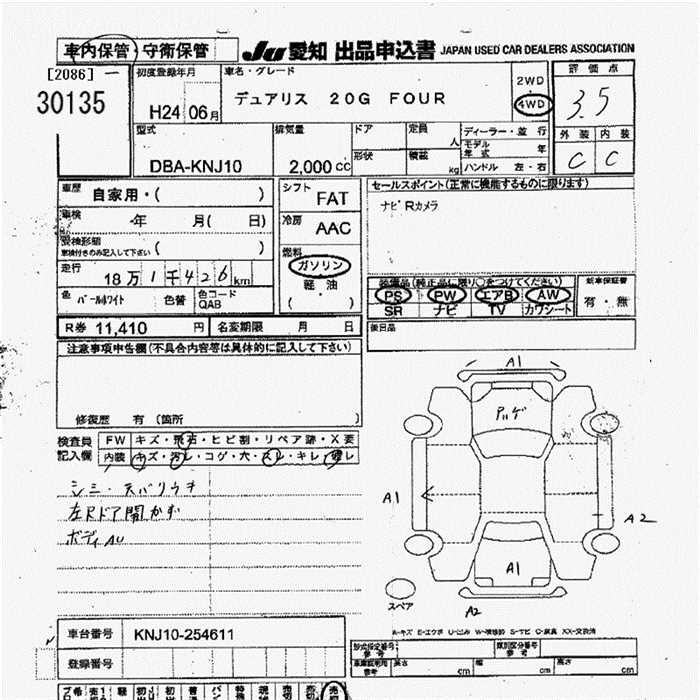 車内保管・守衛保管
JU 愛知 出品申込書 JAPAN USED CAR DEALERS ASSOCIATION
[2086]
30135
初度登録年月 H24 06月
車名・グレード デュアリス 20G FOUR
2WD
4WD
評価点
3.5
外装 内装
C C
型式 DBA-KNJ10
排気量 2,000 CC
ドア 定員 人
形状 積載 kg
ディーラー・並行
モデル年式 年
ハンドル 左・右
車歴 自家用・( )
車検 年 月( 日)
受検形態
車検付きのみ記入して下さい ( )
走行 18万1千426km
色 パールホワイト 色替 色コード QAB
R券 11,410 円 名変期限 月 日
シフト FAT
冷房 AAC
燃料
ガソリン
軽・油
( )
セールスポイント(正常に機能するものに限ります)
ナビ Rカメラ
装備品(純正品に限り○をつけてください)
PS PW エアB AW
SR ナビ TV カワシート
新車保証書
有・無
後日品
注意事項申告欄(不具合内容等は具体的に記入して下さい)
修復歴 有 (箇所 )
検査員記入欄
FW キズ・飛石・ヒビ割・リペア跡・X要
内装 キズ・汚レ・コゲ・穴・スレ・キレ・破レ
シミ・天バリウキ
左Rドア開かず
ボディAU
A1
アルゲ
A1
A2
A1
スペア
A2
A-キズ E-エクボ U-凹ミ W-補修跡 S-サビ C-腐食 XX-交換済
車台番号 KNJ10-254611
登録番号
型式指定番号 参考
類別区分番号 参考
車庫証明用 参考 長さ cm 幅 cm 高さ cm